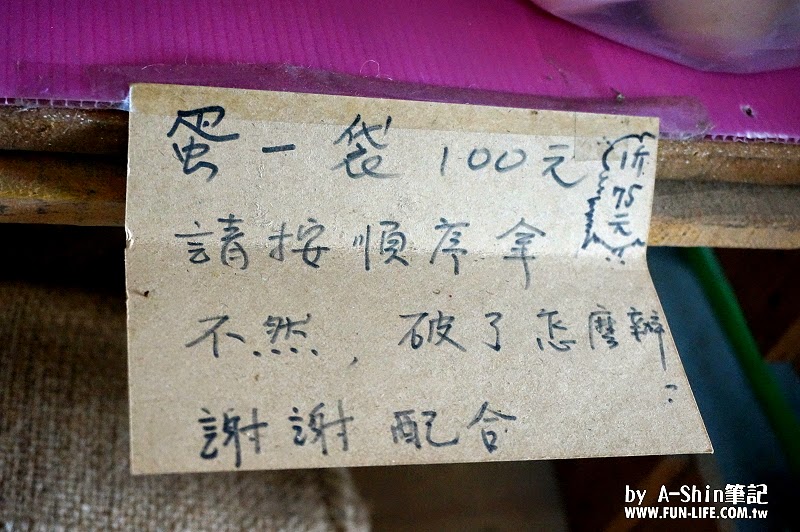 蛋一袋 100元
1斤
75
元
請按順序拿
不然，破了怎麼辦？
謝謝配合
by A-Shin筆記
WWW.FUN-LIFE.COM.TW